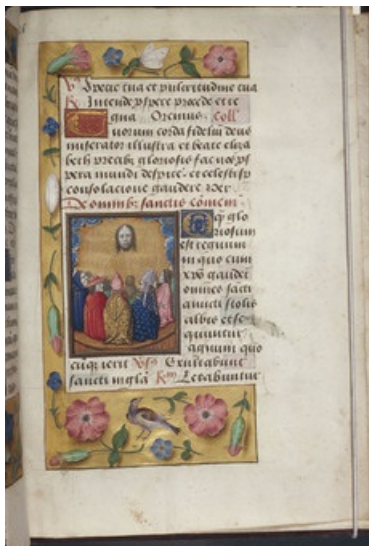 Vs Specie tua et pulcritudine tua
R Intende pspere procede et re
gna Oremus. Coll'
Tuorum corda fidelium deus
miserator illustra et beate eliza
beth precib gloriosis fac nos ps
pera mundi despice et celesti sp
consolacione gaudere Per
De omnib sanctis comem
O qz glo
riosum
est regnum
in quo cum
xpo gaudet
omnes sancti
amicti stolis
albis et se
quuntur
agnum quo
cuqz ierit Vs Exultabunt
sancti in gla R Letabuntur